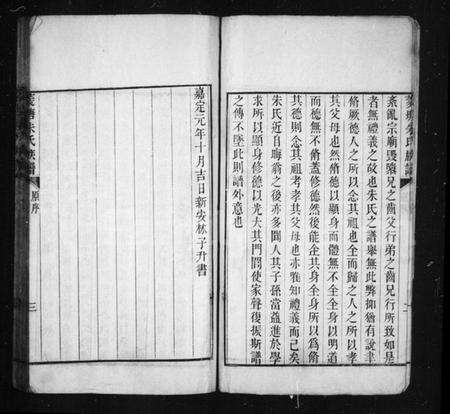 紊亂宗廟毀猿兄之齒父行弟之齒兄行所致如是
者無禮義之故也朱氏之譜舉無此弊抑猶有說聿
脩厥德人之所以念其祖也全而歸之人之所以孝
其父母也然脩德以顯身而體無不全全身以明道
而德無不脩蓋修德然後能全其身全身所以為脩
其德則念其祖考孝其父母也亦惟知禮義而已矣
朱氏近自晦翁之後亦多聞人其子孫當益進於學
求所以顯身修德以光大其門閭使家聲復振斯譜
之傳不墜此則譜外意也
嘉定元年十月吉日新安林子升書
朱氏族譜
原序
三